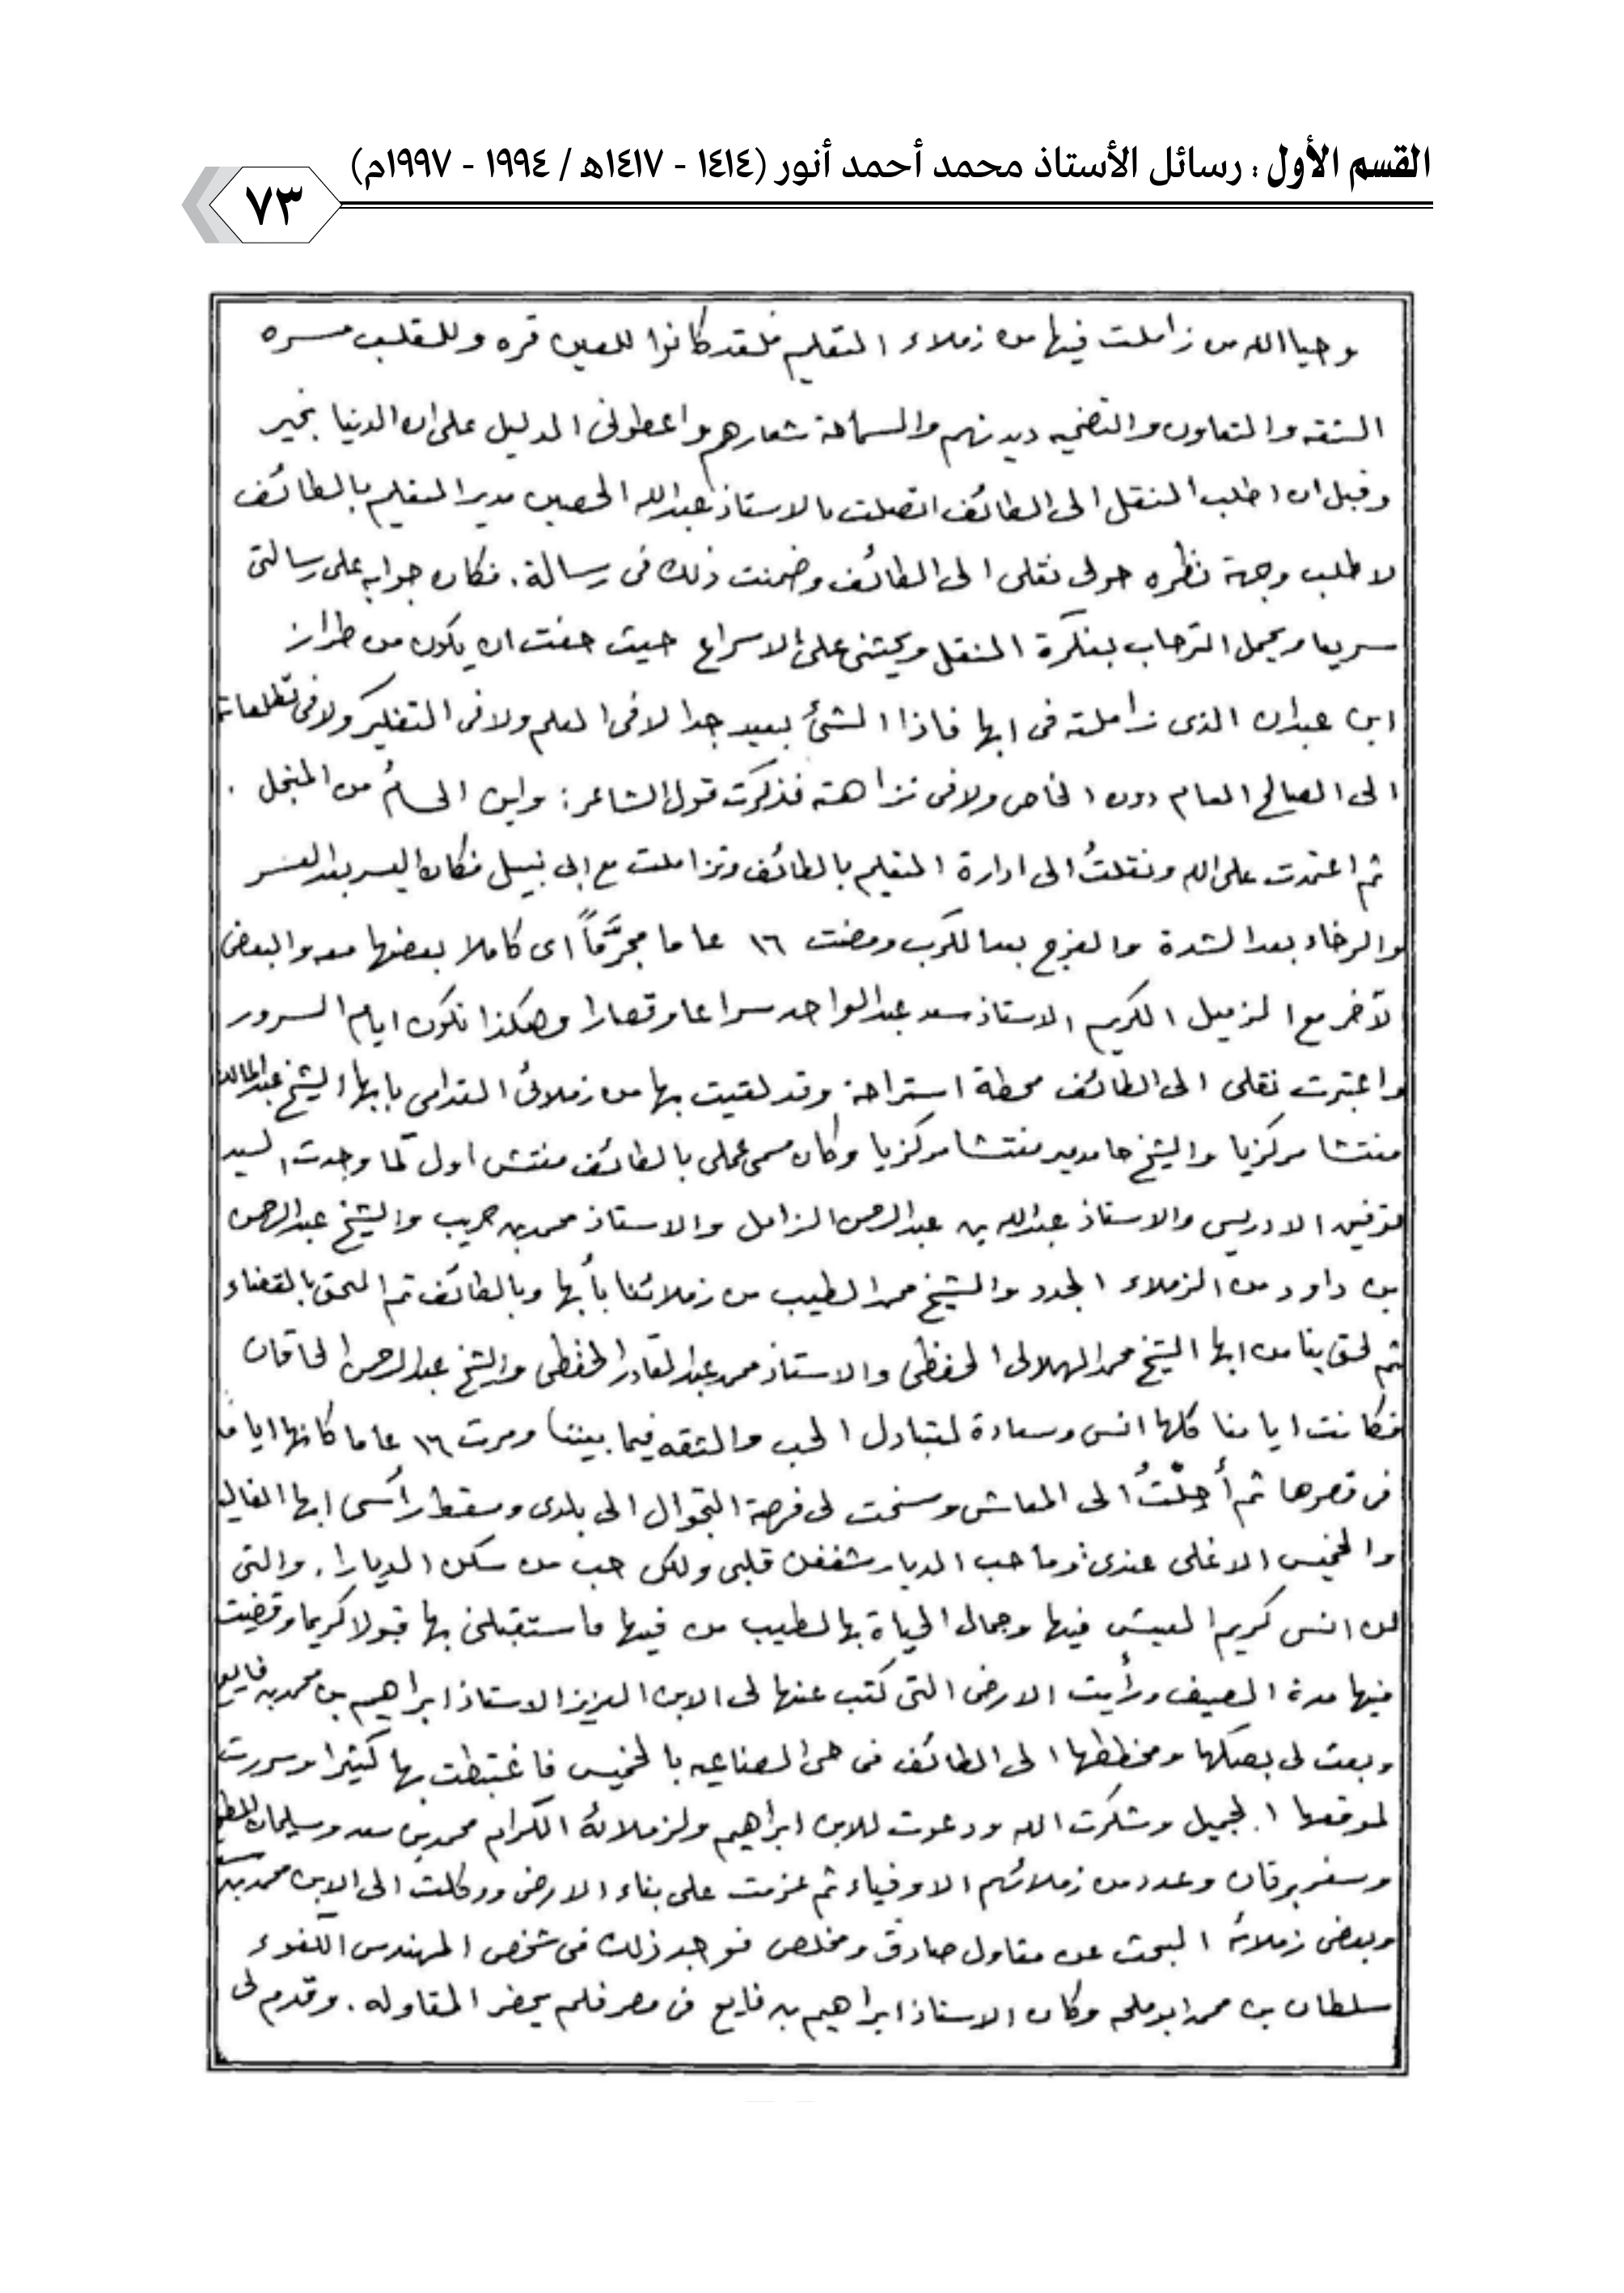 القسم الأول : رسائل الأستاذ محمد أحمد أنور (١٤١٤ - ١٤١٧هـ / ١٩٩٤ - ١٩٩٧م)
٧٣
وحيا الله من زاملت فيها من زملاء التعليم فلقد كانوا للعين قره وللقلب مسره
الثقه والتعاون والتضحيه ديدنهم والسماحة شعارهم واعطوني الدليل على ان الدنيا بخير
وقبل ان اطلب النقل الى الطائف اتصلت بالاستاذ عبدالله الحصين مدير التعليم بالطائف
لاطلب وجهة نظره حول نقلي الى الطائف وضمنت ذلك في رسالة. فكان جوابه على رسالتي
سريعا ويحمل الترحاب بفكرة النقل ويحثني على الاسراع حيث خفت ان يكون من طراز
ابن عبدان الذي زاملته في ابها فاذا الشئ بعيد جدا لا في العلم ولا في التفكير ولا في تطلعاته
الى الصالح العام دون الخاص ولا في نزاهته فذكرت قول الشاعر: واين الحسامُ من المنجل .
ثم اعتمدت على الله ونقلتُ الى ادارة التعليم بالطائف وتزاملت مع ابي نبيل فكان اليسر بعد العسر
والرخاء بعد الشدة والفرج بعد الكرب ومضت ١٦ عاما مجرَّماً اى كاملا بعضها معه والبعض
الآخر مع الزميل الكريم الاستاذ سعد عبدالواحد سراعا وقصارا وهكذا تكون ايام السرور
واعتبرت نقلي الى الطائف محطة استراحة وقد لقيت بها من زملائي القدامى بابها الشيخ عبدالمالك
مفتشا مركزيا والشيخ حامد مفتشا مركزيا وكان مسمى عملي بالطائف مفتش اول كما وجدت السيد
توفيق الادريسي والاستاذ عبدالله بن عبدالرحمن الزامل والاستاذ محمد بن حريب والشيخ عبدالرحمن
بن داود من الزملاء الجدد والشيخ محمد الطيب من زملائنا بأبها وبالطائف ثم التحق بالقضاء
ثم لحق بنا من ابها الشيخ محمد الهلالي الحفظي والاستاذ محمد عبدالقادر الحفظي والشيخ عبدالرحمن الحاقان
فكانت ايامنا كلها انس وسعادة لتبادل الحب والثقه فيما بيننا ومرت ١٦ عاما كانها اياما
في قصرها ثم أُحِلْتُ الى المعاش وسنحت لي فرصة التجوال الى بلدي ومسقط رأسي ابها الغاليه
والخميس الاغلى عندي: وما حب الديار شغفن قلبي ولكن حب من سكن الديارا. والتي
لن انسى كريم العيش فيها وجمال الحياة بها لطيب من فيها فاستقبلني بها قبولا كريما وقضيت
فيها مدة الصيف ورأيت الارض التي كتب عنها لي الابن العزيز الاستاذ ابراهيم بن محمد بن فايع
وبعث لي بصكها ومخططها الى الطائف في حي الصناعيه بالخميس فاغتبطت بها كثيرا وسررت
لموقعها الجميل وشكرت الله ودعوت للابن ابراهيم ولزملائه الكرام محمد بن سعد وسليمان
وسفر برقان وعدد من زملائهم الاوفياء ثم عزمت على بناء الارض ووكلت الى الابن محمد بن
وبعض زملائه البحث عن مقاول صادق ومخلص فوجد ذلك في شخص المهندس الكفوء
سلطان بن محمد ابو ملحه وكان الاستاذ ابراهيم بن فايع في مصر فلم يحضر المقاوله. وقدم لي